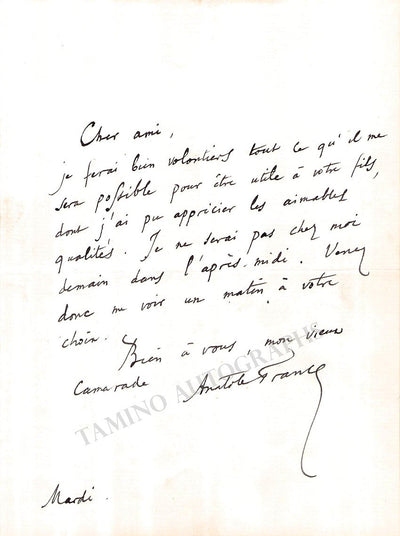 Cher ami,
je ferai bien volontiers tout ce qu'il me
sera possible pour être utile à votre fils,
dont j'ai pu apprécier les aimables
qualités. Je ne serai pas chez moi
demain dans l'après-midi. Venez
donc me voir un matin à votre
choix.
Bien à vous, mon vieux
camarade
Anatole France
TAMINO AUTOGRAPHS
Mardi.